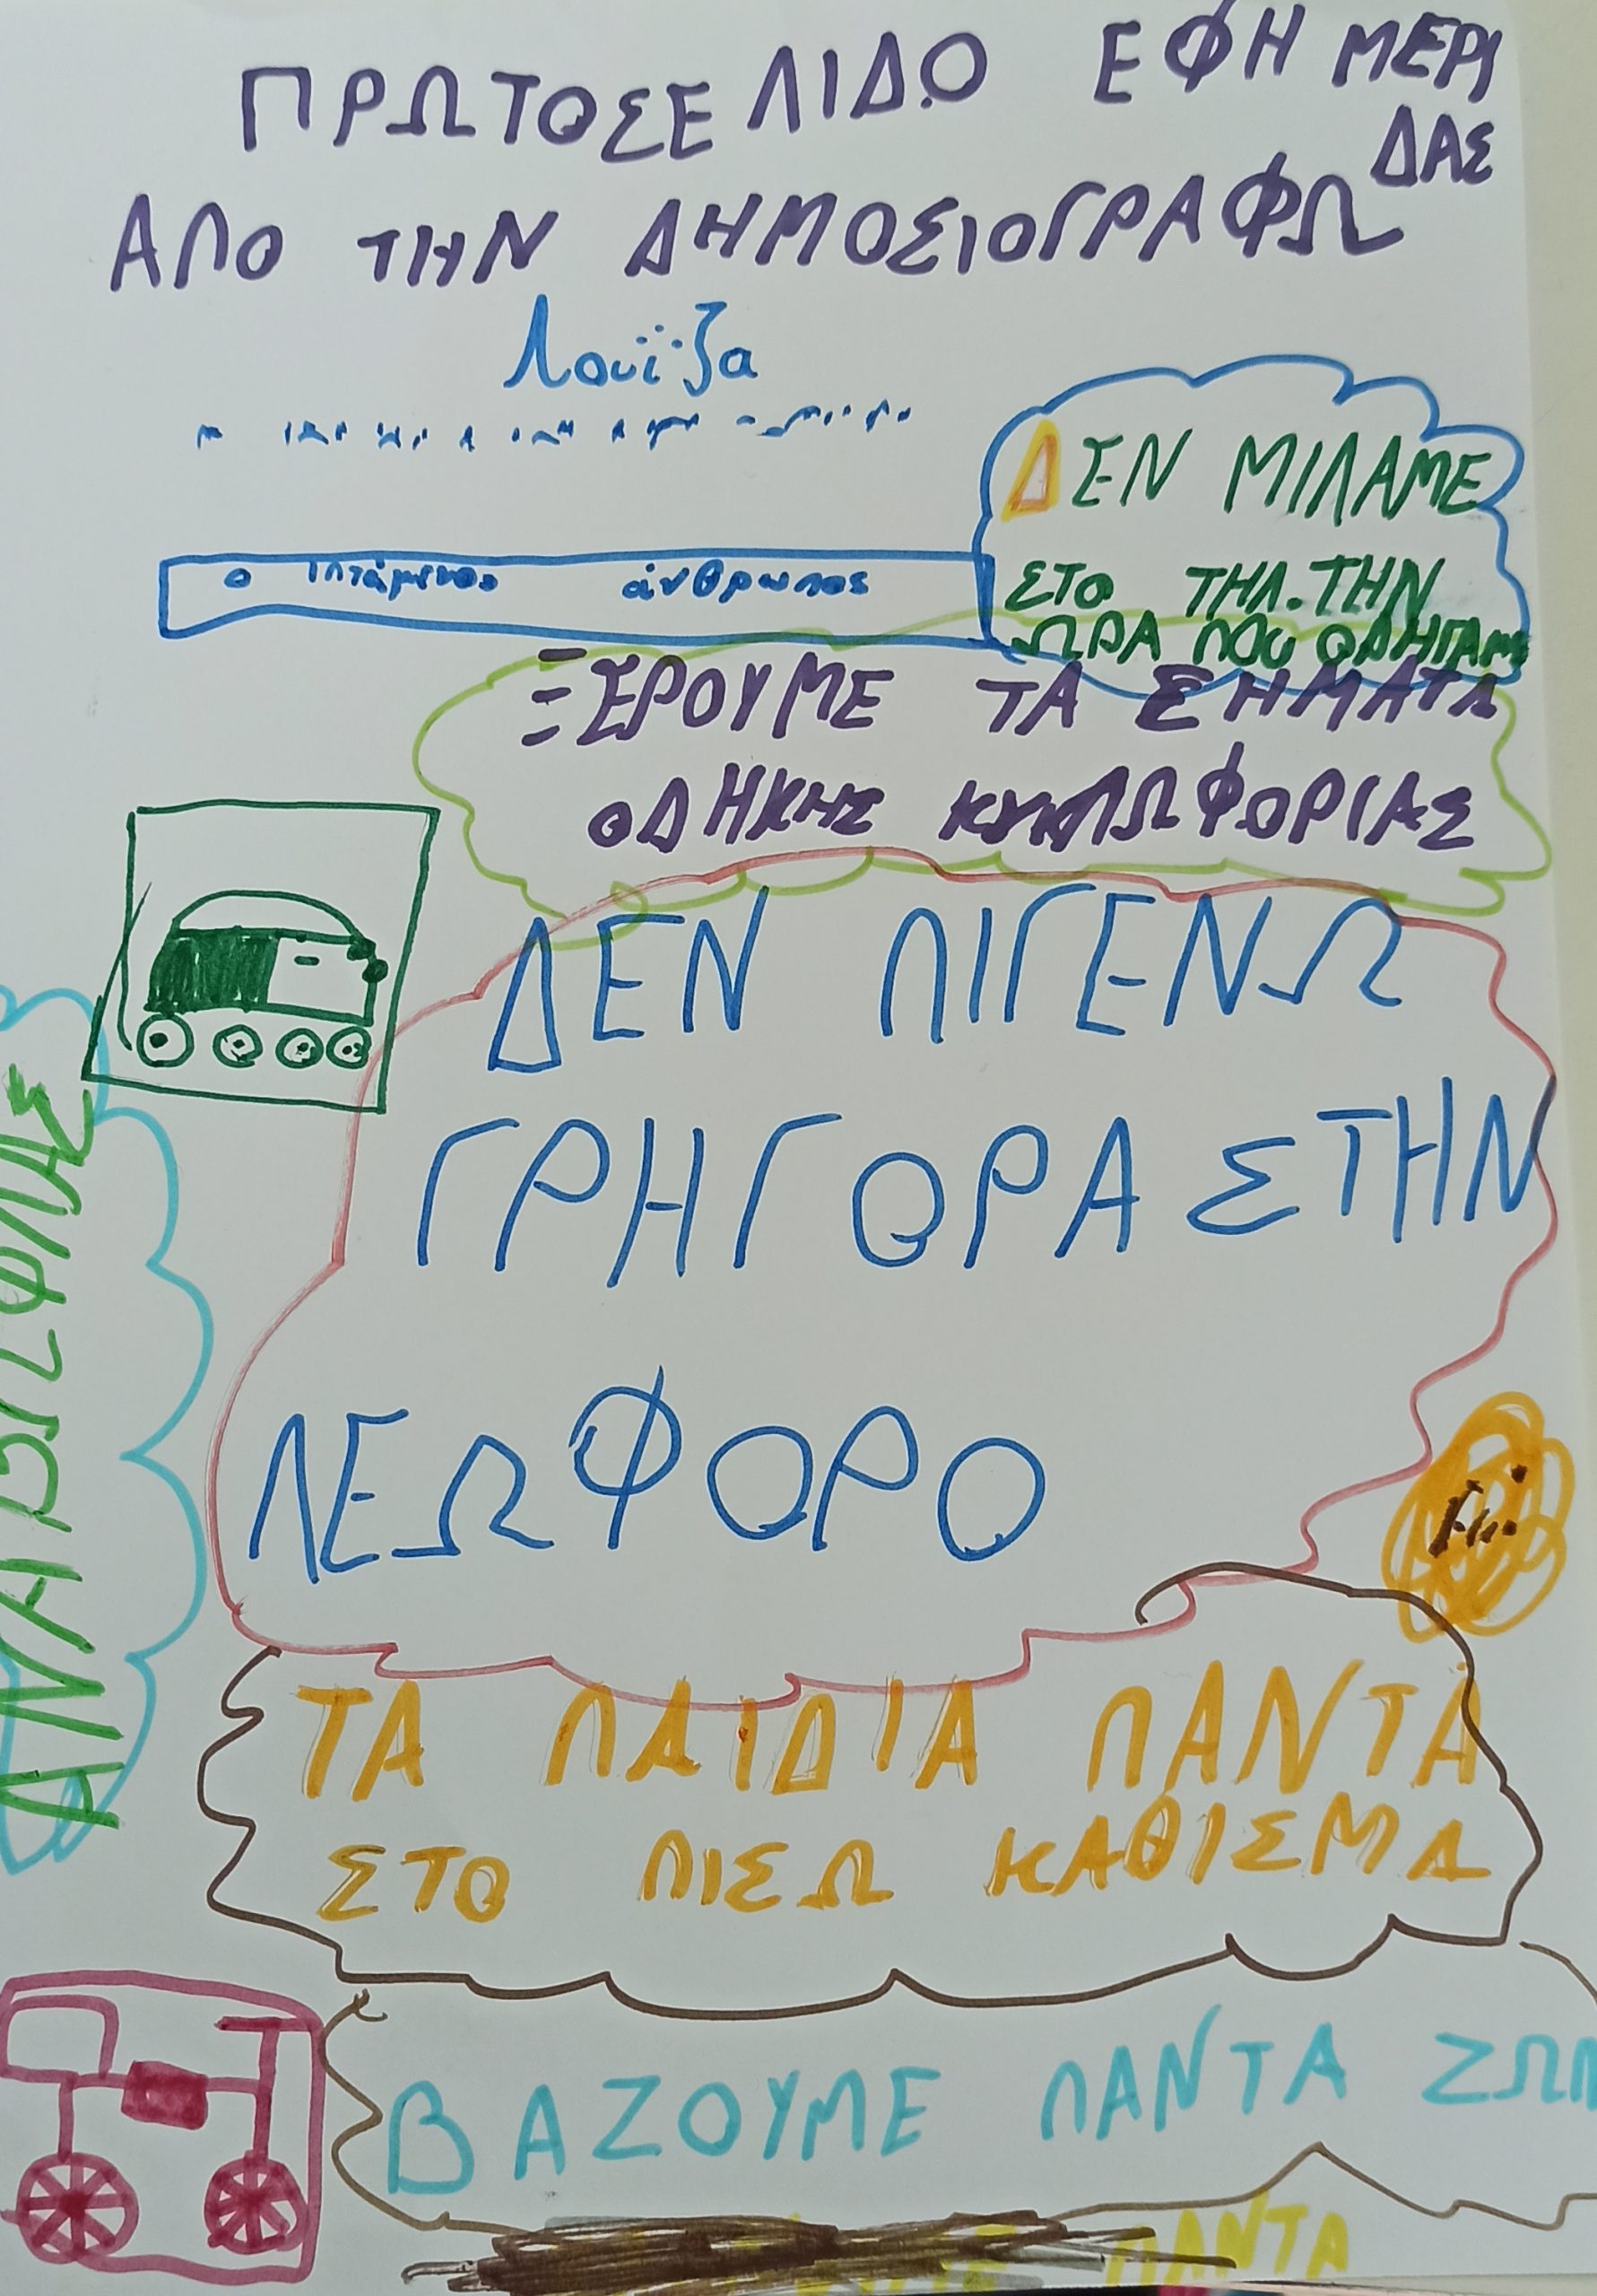 ΠΡΩΤΟΣΕΛΙΔΟ ΕΦΗΜΕΡΙ
ΔΑΣ
ΑΠΟ ΤΗΝ ΔΗΜΟΣΙΟΓΡΑΦΩ
Λουΐζα
ΔΕΝ ΜΙΛΑΜΕ
ΣΤΟ ΤΗΛ. ΤΗΝ
ΩΡΑ ΠΟυ ΟΔΗΓΑΜΕ
ο ιπτάμενος άνθρωπος
ΞΕΡΟΥΜΕ ΤΑ ΣΗΜΑΤΑ
ΟΔΗΚΗΣ ΚΥΚΛΩΦΟΡΙΑΣ
ΔΕΝ ΠΙΓΕΝΩ
ΓΡΗΓΟΡΑ ΣΤΗΝ
ΛΕΩΦΟΡΟ
ΤΑ ΠΑΙΔΙΑ ΠΑΝΤΑ
ΣΤΟ ΠΙΣΩ ΚΑΘΙΣΜΑ
ΒΑΖΟΥΜΕ ΠΑΝΤΑ ΖΩΝ
ΠΑΝΤΑ